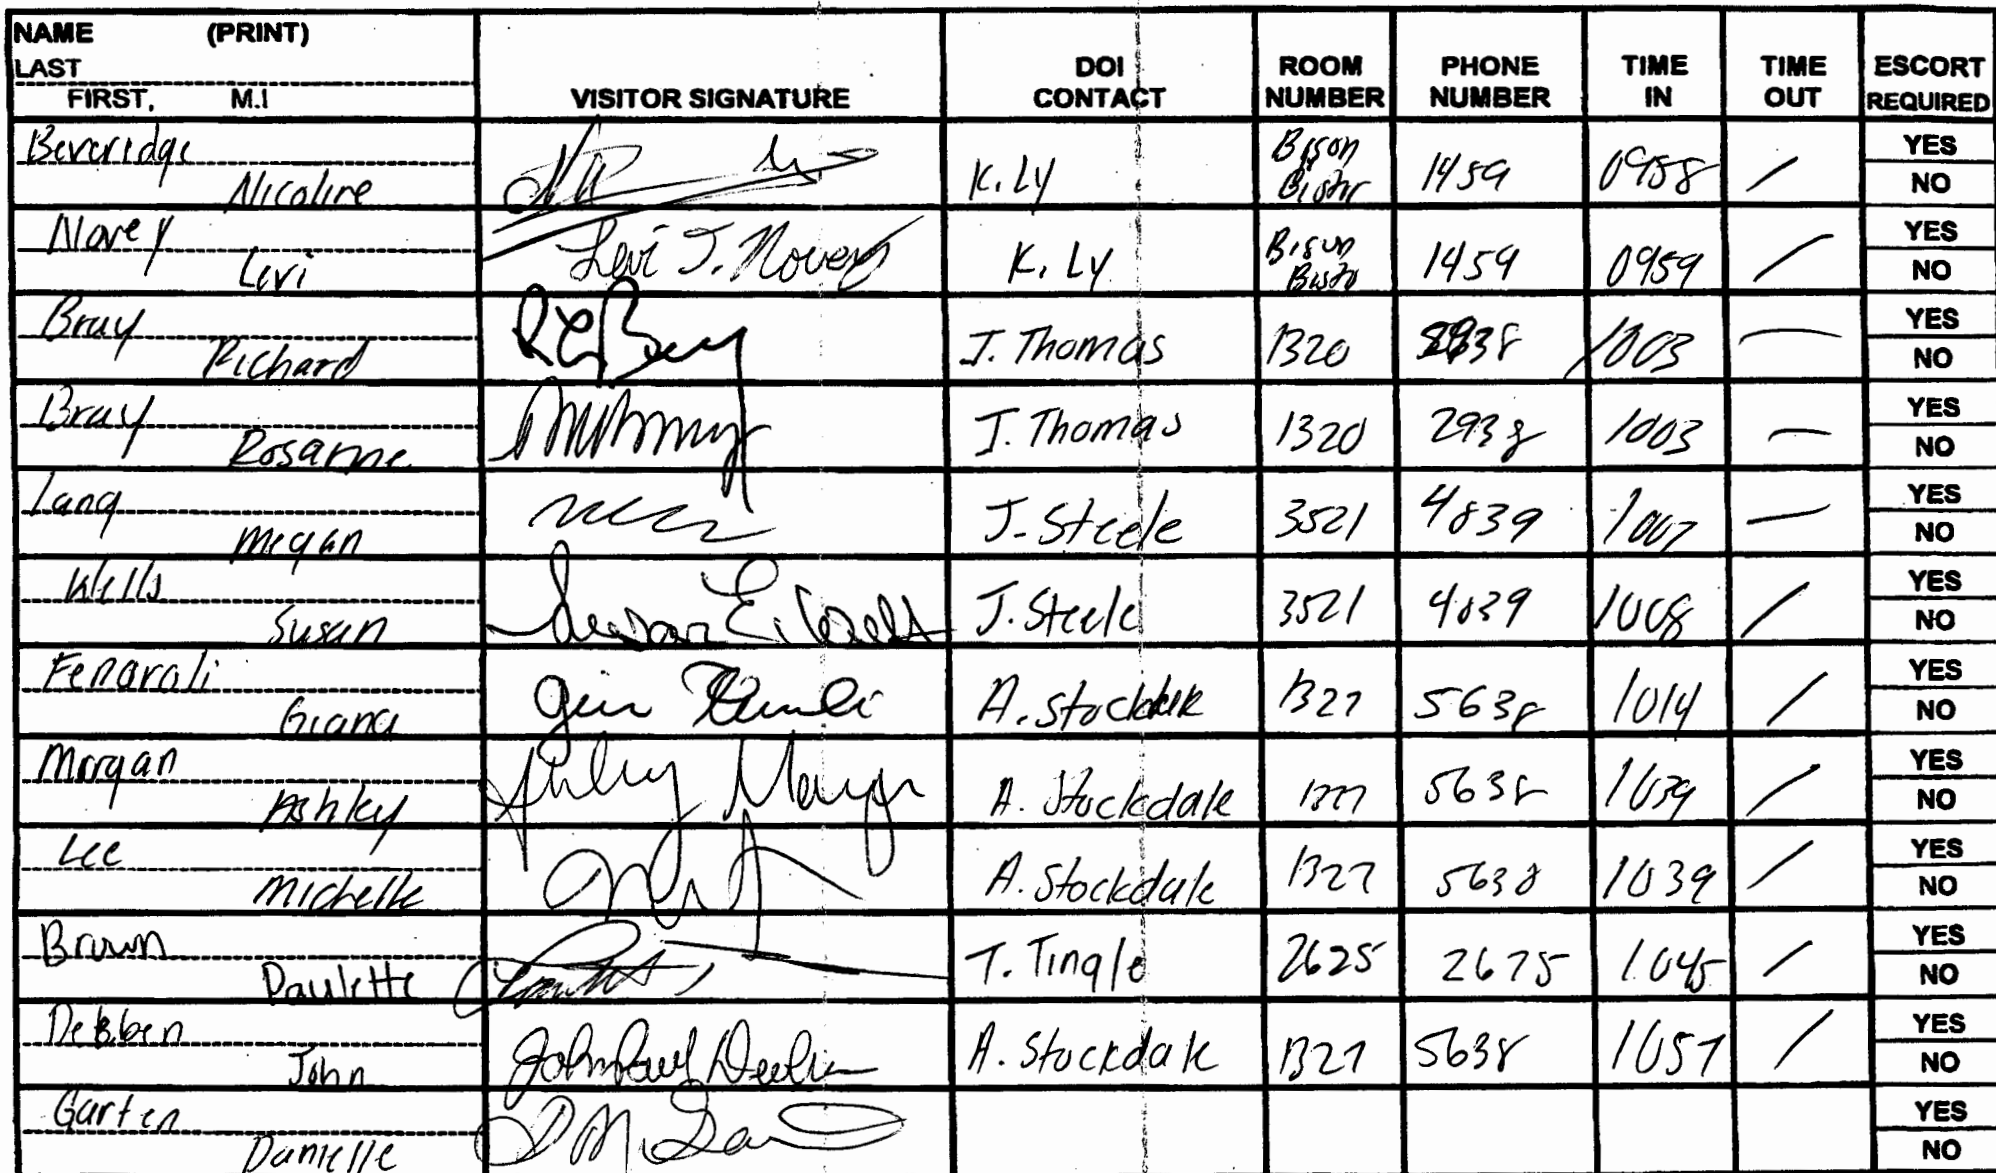 NAME (PRINT)
LAST
FIRST, M.I
VISITOR SIGNATURE
DOI CONTACT
ROOM NUMBER
PHONE NUMBER
TIME IN
TIME OUT
ESCORT REQUIRED
Beveridge
Nicoline K. Ly Bison 1459 0958 / YES NO
Novey
Levi Levi J. Novey K. Ly Bison Bistro 1459 0959 / YES NO
Bray
Richard J. Thomas 1320 1003 — YES NO
Bray
Rosanne J. Thomas 1320 2938 1003 — YES NO
Lang
Megan J. Steele 3521 4839 1007 — YES NO
Wells
Susan J. Steele 3521 4839 1008 / YES NO
Fenaroli
Giana A. Stockdale 1327 5638 1014 / YES NO
Morgan
Ashley Ashley Morgan A. Stockdale 1327 5638 1039 / YES NO
Lee
Michelle A. Stockdale 1327 5638 1039 / YES NO
Brown
Paulette T. Tingle 2625 2675 1045 / YES NO
John A. Stockdale 1327 5638 1057 / YES NO
Garten
Danielle YES NO